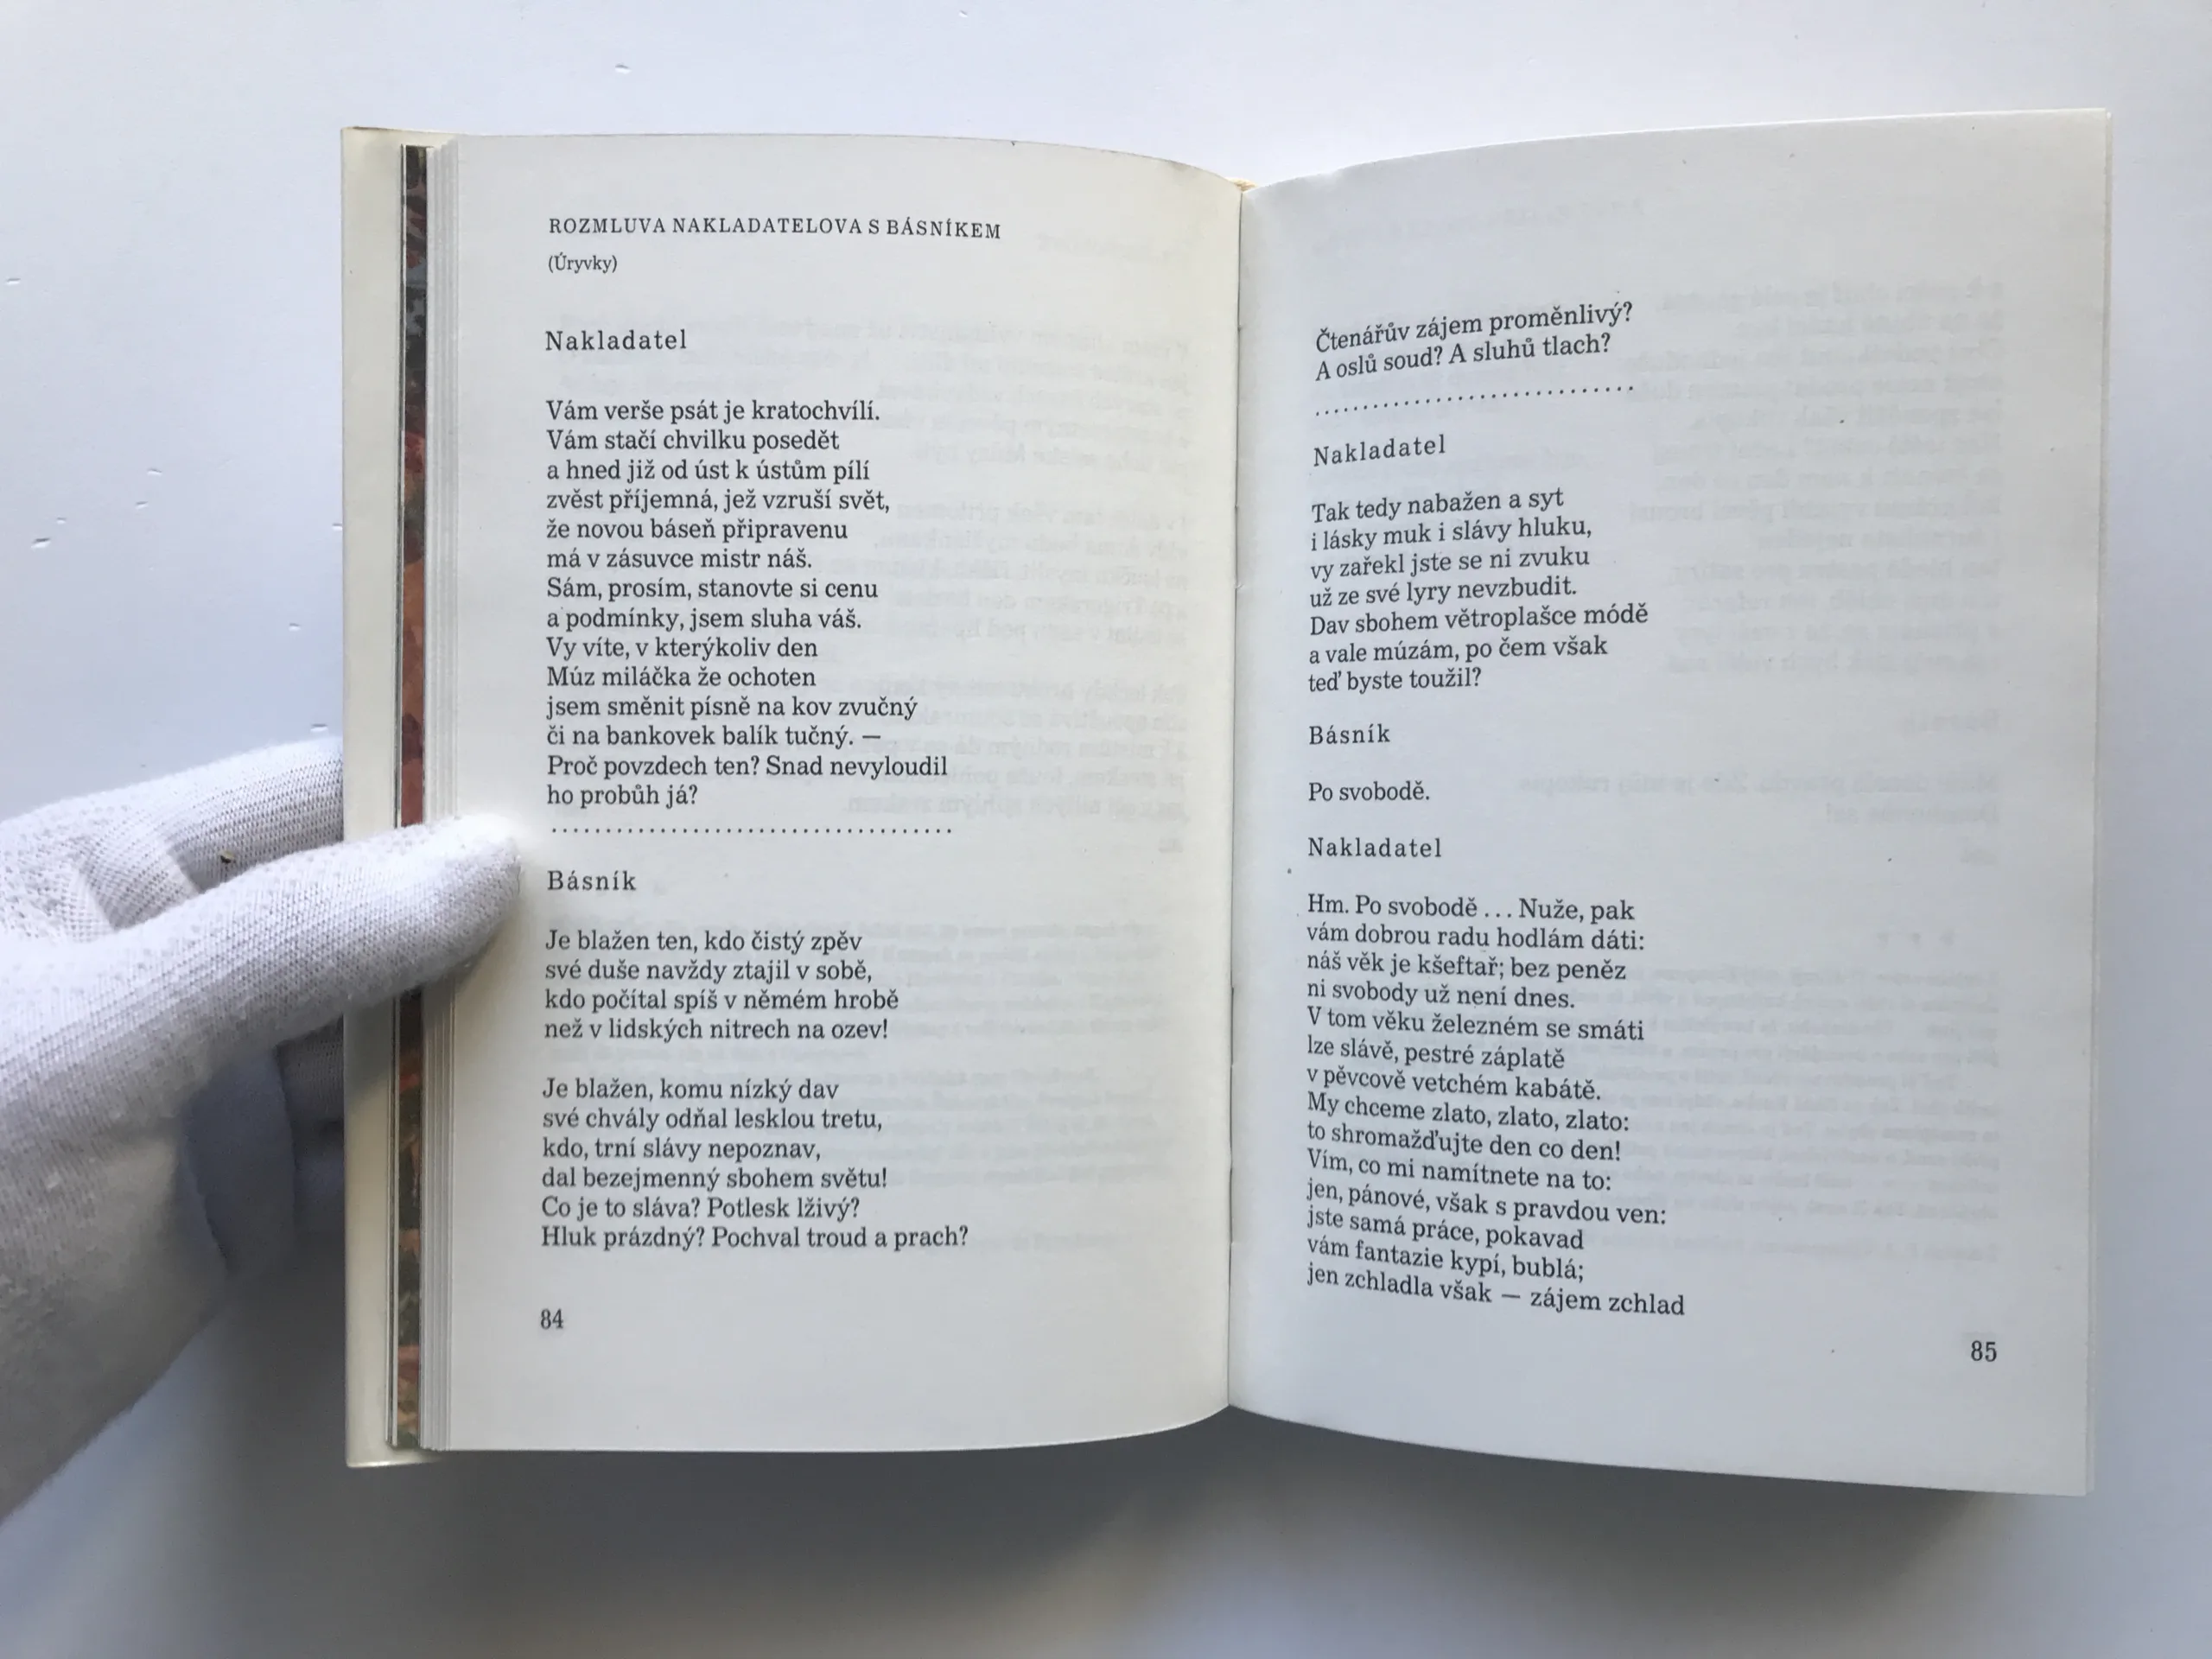 ROZMLUVA NAKLADATELOVA S BÁSNÍKEM
(Úryvky)
Nakladatel
Vám verše psát je kratochvílí.
Vám stačí chvilku posedět
a hned již od úst k ústům pílí
zvěst příjemná, jež vzruší svět,
že novou báseň připravenu
má v zásuvce mistr náš.
Sám, prosím, stanovte si cenu
a podmínky, jsem sluha váš.
Vy víte, v kterýkoliv den
Múz miláčka že ochoten
jsem směnit písně na kov zvučný
či na bankovek balík tučný. —
Proč povzdech ten? Snad nevyloudil
ho probůh já?
. . . . . . . . . . . . . . . . . . . . . . . . . . . . . . . . . . . .
Básník
Je blažen ten, kdo čistý zpěv
své duše navždy ztajil v sobě,
kdo počítal spíš v němém hrobě
než v lidských nitrech na ozev!
Je blažen, komu nízký dav
své chvály odňal lesklou tretu,
kdo, trní slávy nepoznav,
dal bezejmenný sbohem světu!
Co je to sláva? Potlesk lživý?
Hluk prázdný? Pochval troud a prach?
84
Čtenářův zájem proměnlivý?
A oslů soud? A sluhů tlach?
. . . . . . . . . . . . . . . . . . . . . . . . . . . . .
Nakladatel
Tak tedy nabažen a syt
i lásky muk i slávy hluku,
vy zařekl jste se ni zvuku
už ze své lyry nevzbudit.
Dav sbohem větroplašce módě
a vale múzám, po čem však
teď byste toužil?
Básník
Po svobodě.
Nakladatel
Hm. Po svobodě ... Nuže, pak
vám dobrou radu hodlám dáti:
náš věk je kšeftař; bez peněz
ni svobody už není dnes.
V tom věku železném se smáti
lze slávě, pestré záplatě
v pěvcově vetchém kabátě.
My chceme zlato, zlato, zlato:
to shromažďujte den co den!
Vím, co mi namítnete na to:
jen, pánové, však s pravdou ven:
jste samá práce, pokavad
vám fantazie kypí, bublá;
jen zchladla však — zájem zchlad
85